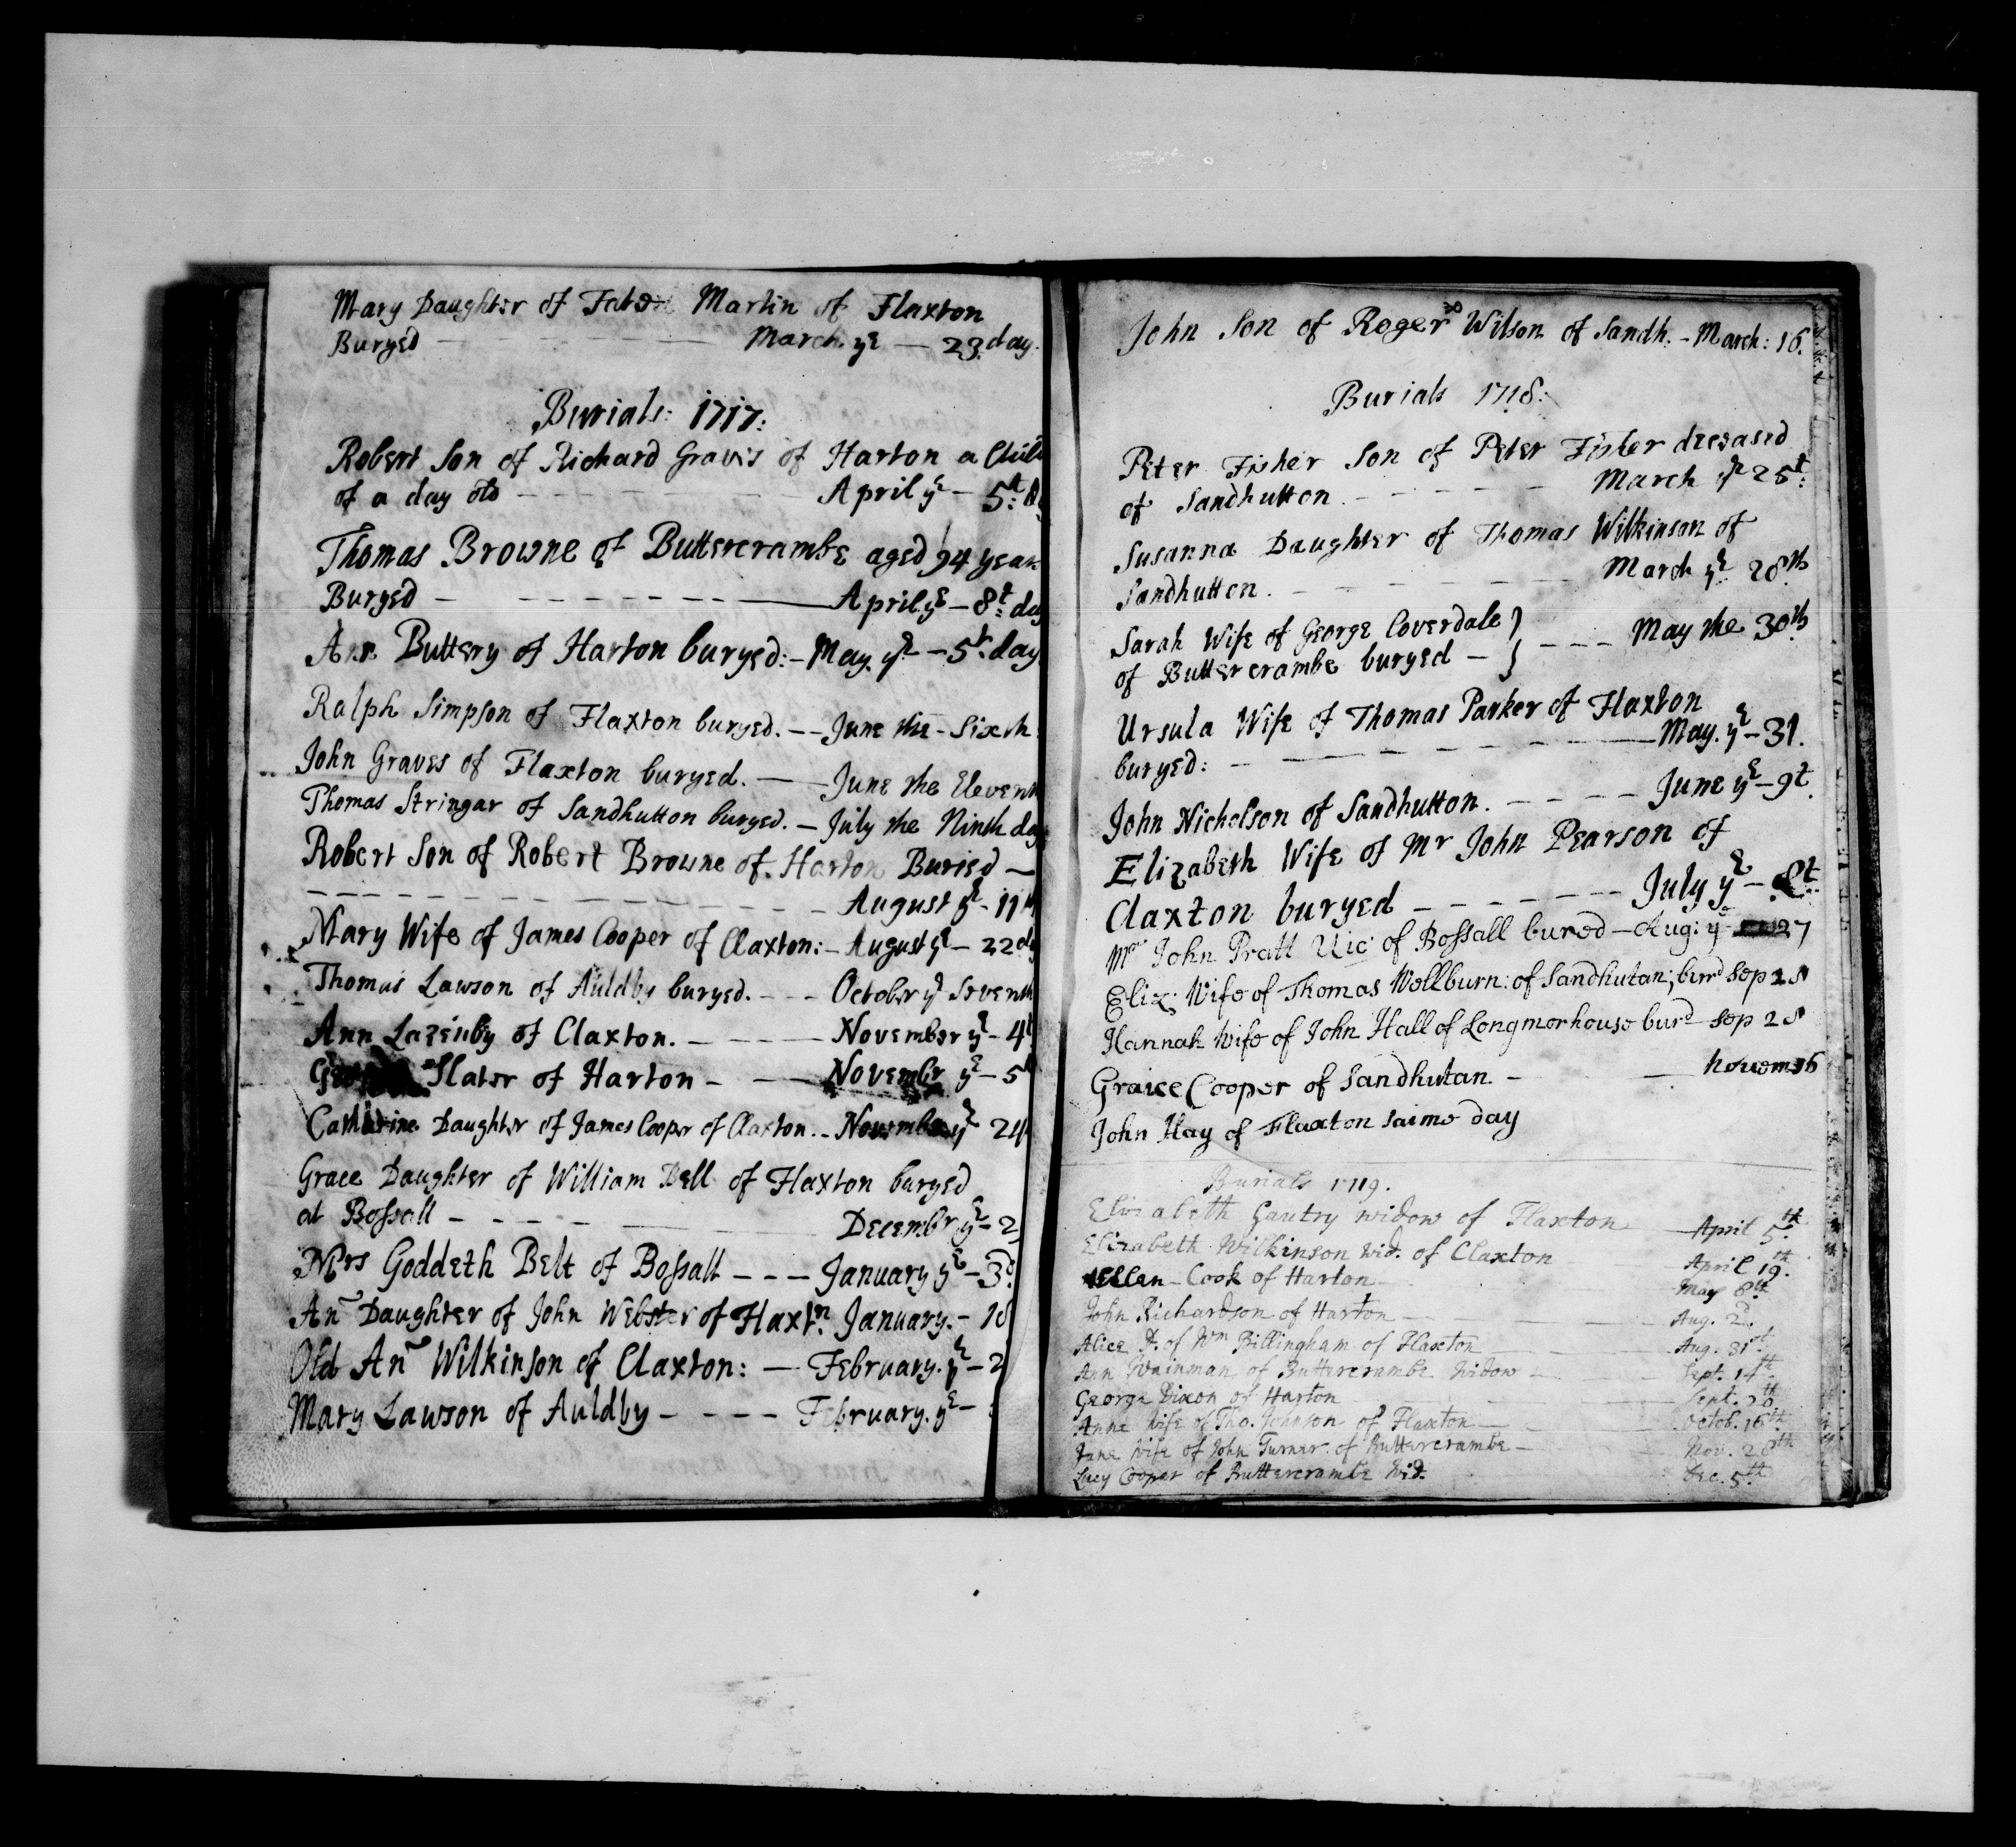 Mary Daughter of Martin of Flaxton
Buryed March ye 23 day.
Burials: 1717:
Robert Son of Richard Graves of Harton a Child
of a day old April ye 5t
Thomas Browne of Buttercrambe aged 94 year
Buryed April ye 8t day
Ann Buttery of Harton buryed: May ye 5t day
Ralph Simpson of Flaxton buryed. June the Sixth
John Graves of Flaxton buryed. June the Eleventh
Thomas Stringar of Sandhutton buryed. July the Ninth day
Robert Son of Robert Browne of Harton Buried
August ye 11th
Mary Wife of James Cooper of Claxton: August ye 22d
Thomas Lawson of Auldby buryed. October ye Seventh
Ann Lazenby of Claxton. November ye 4t
Slater of Harton Novembr ye 5t
Catharine Daughter of James Cooper of Claxton. November ye 24
Grace Daughter of William Bell of Flaxton buryed
at Bossall Decembr ye 2
Mrs Goddeth Belt of Bossall January ye 3d
An Daughter of John Webster of Flaxtn. January. 18
Old An Wilkinson of Claxton: February. ye 2
Mary Lawson of Auldby February. ye
John Son of Roger Wilson of Sandh. March: 16.
Burials 1718:
Peter Fisher Son of Peter Fisher deceased
of Sandhutton March ye 25t
Susanna Daughter of Thomas Wilkinson of
Sandhutton. March ye 28th
Sarah Wife of George Coverdale
of Buttercrambe buryed May the 30th
Ursula Wife of Thomas Parker of Flaxton
buryed: May. ye 31.
John Nicholson of Sandhutton. June ye 9t
Elizabeth Wife of Mr John Pearson of
Claxton buryed July ye 8t
Mr John Pratt Vic of Bossall bured Aug: ye 27
Eliz: Wife of Thomas Wellburn: of Sandhutan; burd Sep 28
Hannah Wife of John Hall of Longmorhouse burd Sep 28
Graice Cooper of Sandhutan. Nouem 16
John Hay of Flaxton saime day
Burials 1719.
Elizabeth Gautry widow of Flaxton April 5th.
Elizabeth Wilkinson wid. of Claxton April 19th.
Ellen Cook of Harton May 8th
John Richardson of Harton Aug. 2d.
Alice D. of Wm Billingham of Flaxton Aug. 31st.
Ann Wainman of Buttercrambe widow Sept. 14th
George Dixon of Harton Sept. 26th
Anne Wife of Tho. Johnson of Flaxton Octob. 16th
Jane Wife of John Turner of Buttercrambe Nov. 28th
Lucy Cooper of Buttercrambe Wid. Dec. 5th